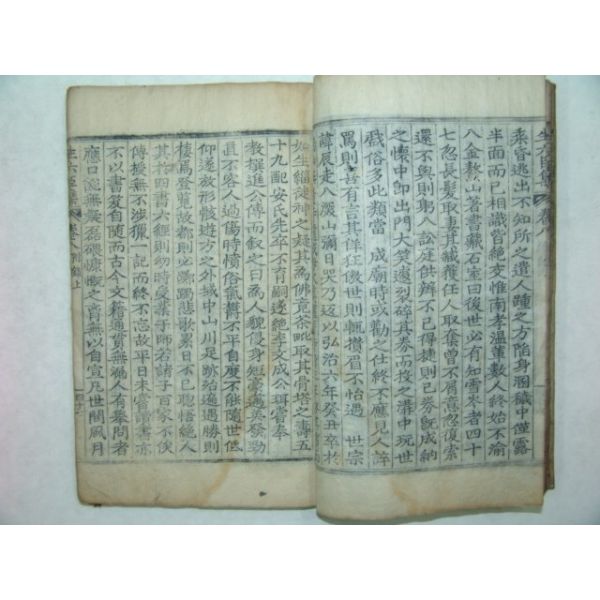 生六臣集 卷八
乘昏逃出不知所之遣人踵之方陷身溷穢中僅露
半面而已相識皆絶交惟南孝溫董數人終始不渝
入金鰲山著書藏石室曰後世必有知雪岑者四十
七忽長髮取妻其臧獲任人取棄曾不屑意忽復索
還不與則躬入訟庭供辨不已得捷則已券旣成納
之懷中即出門大笑遽裂碎其券而投之溝中玩世
戱俗多此類當 成廟時或勸之仕終不應見人誶
罵則喜有言其佯狂傲世則輒攢眉不怡遇 世宗
諱辰走入深山彌日哭乃返以弘治六年癸丑卒於
如生緇徒神之疑其爲佛竟茶毗取其骨塔之壽五
十九配安氏先卒不育嗣遂絶李文成公珥嘗奉
敎撰進公傳而叙之曰爲人貌侵身短豪邁英發勁
直不容人過傷時憤俗氣鬱不平自度不能隨世低
仰遂放形骸遊方之外域中山川足跡殆遍遇勝則
棲焉登覽故都則必踟躅悲歌累日不已聰悟絶人
其於四書六經則幼師若諸子百家不俟
傳授無不涉獵一記而終不忘故平日未嘗讀書亦
不以書笈自隨而古今文籍通貫無漏人有舉問者
應口說無疑磊磈慷慨之胸無以自宣凡世間風月
生六臣集 卷 上